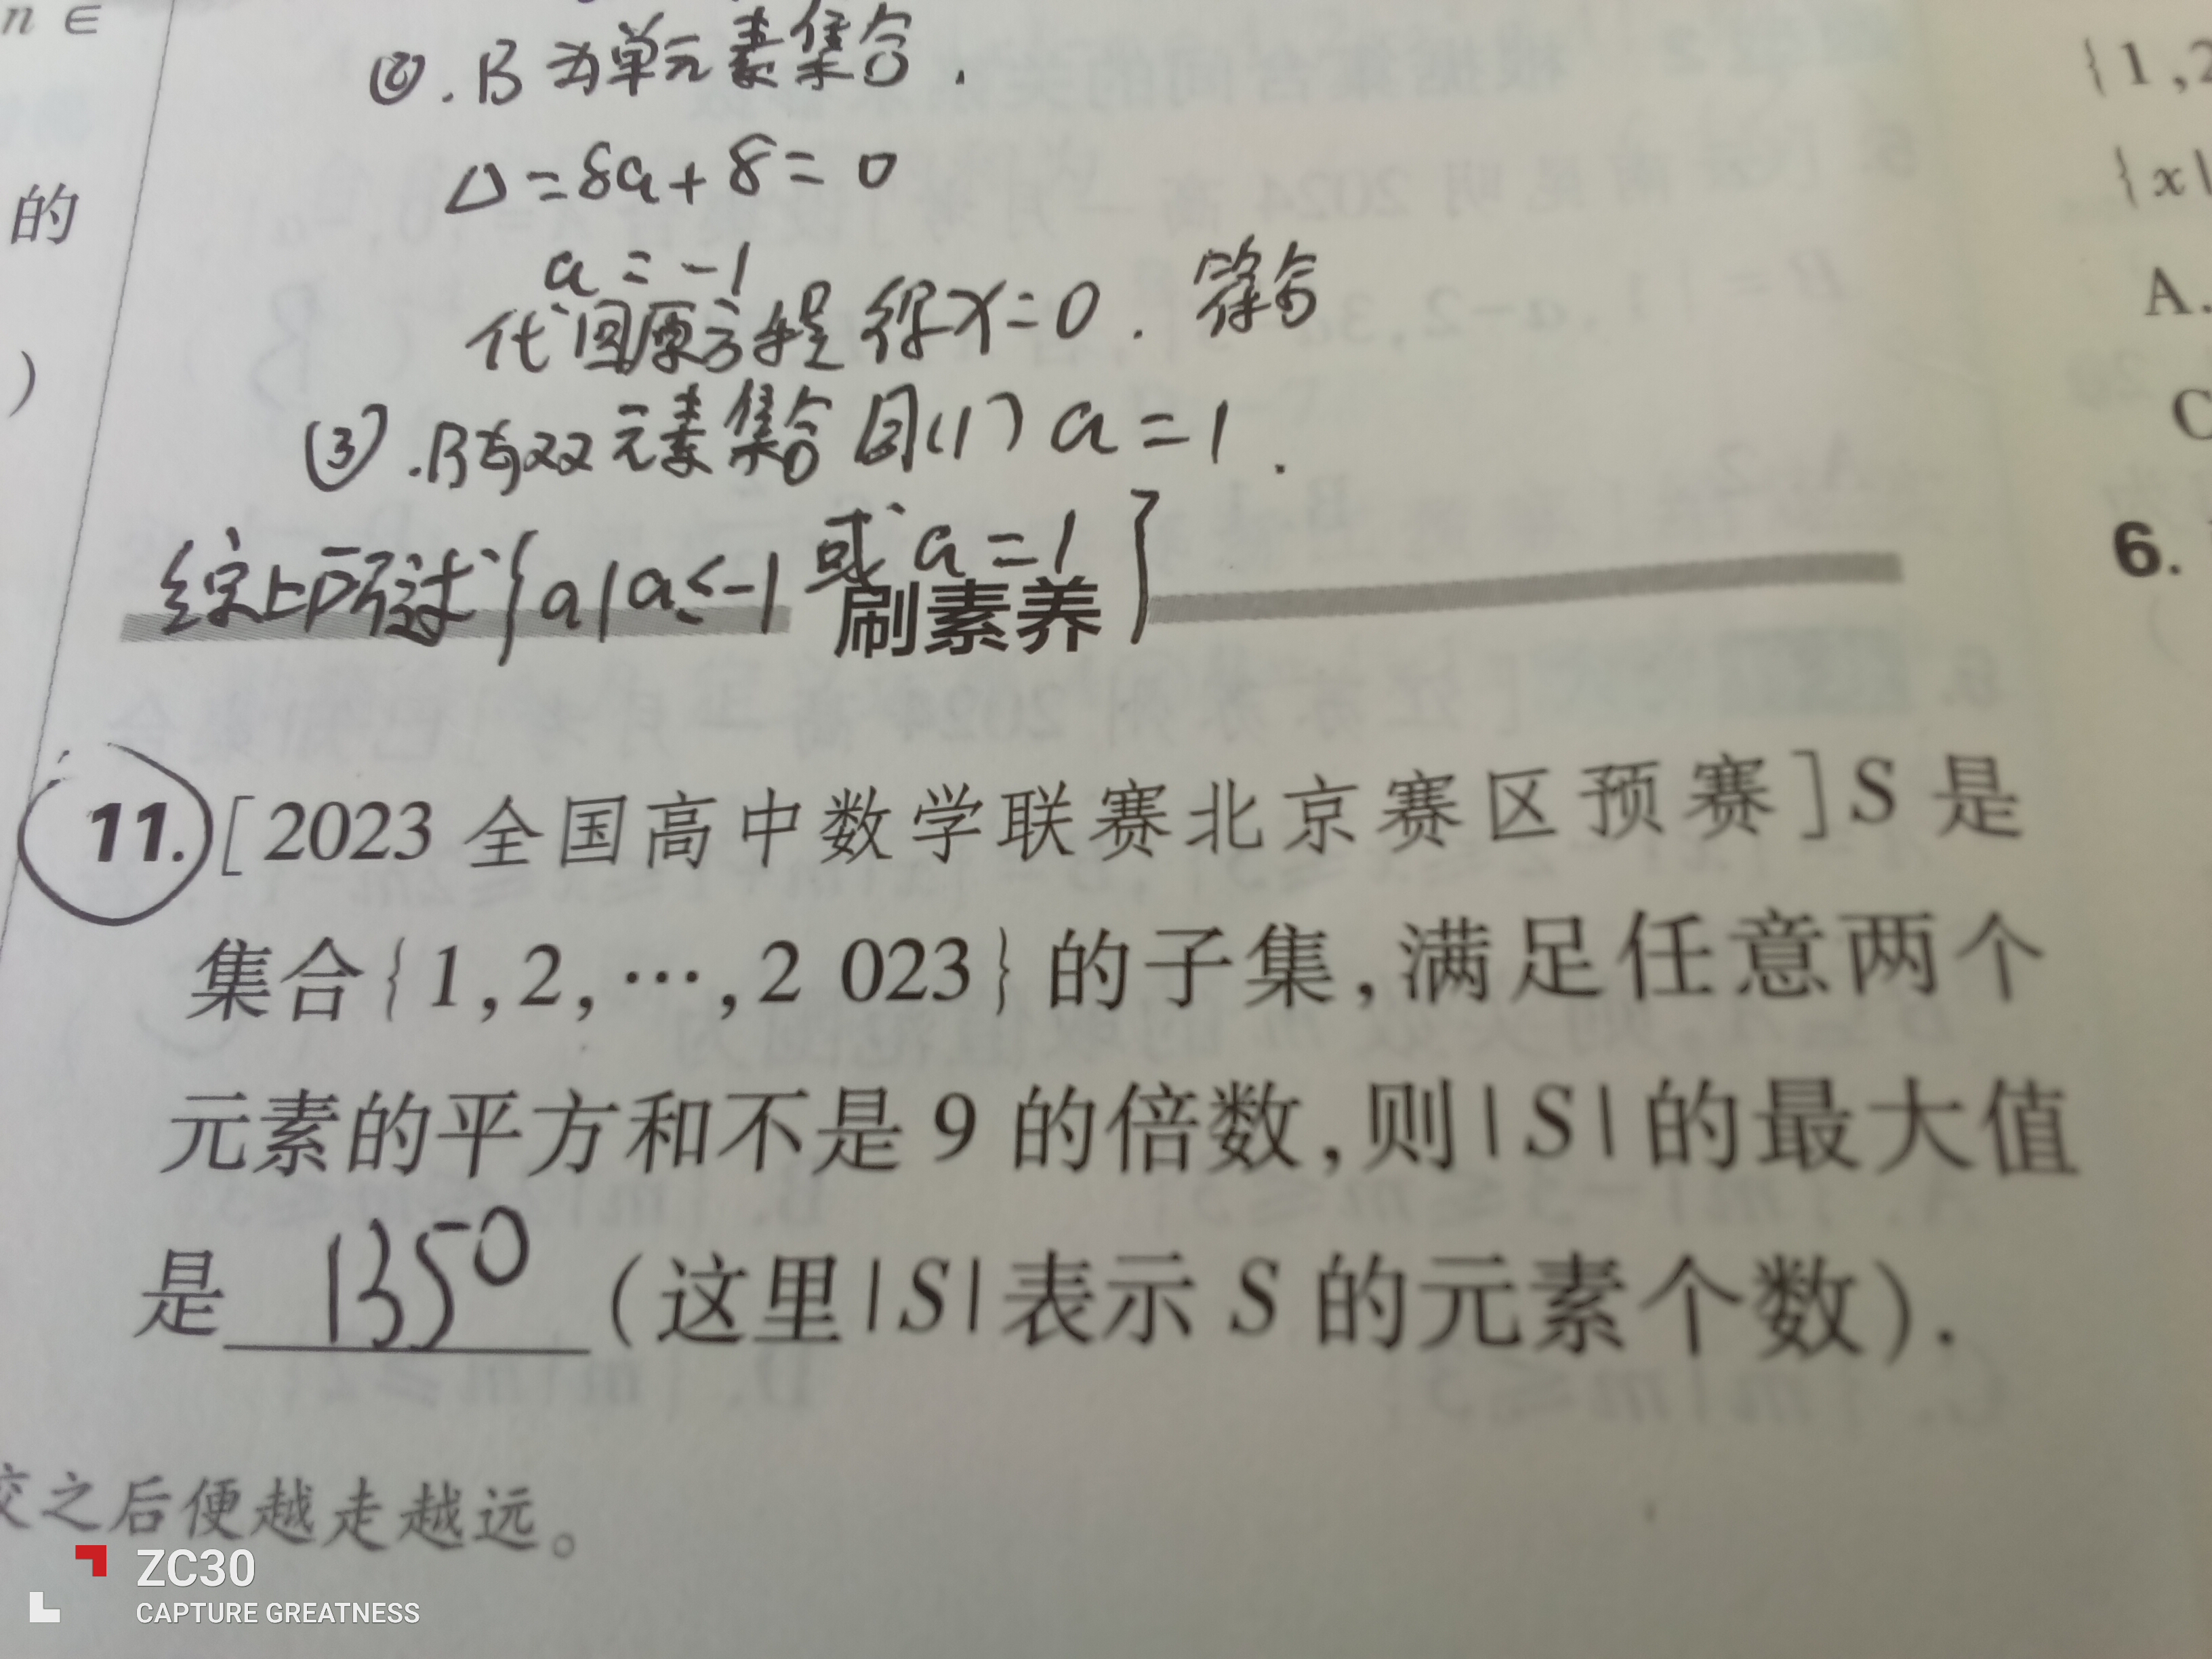 n ∈
②. B为单元素集合.
Δ=8a+8=0
a=-1
代回原方程得x=0. 符合
③.B为双元素集合 同(1) a=1.
综上所述{a|a≤-1 或a=1}
刷素养
的
)
11.[2023 全国高中数学联赛北京赛区预赛]S 是
集合{1,2,…,2 023}的子集,满足任意两个
元素的平方和不是9的倍数,则|S|的最大值
是 1350 (这里|S|表示 S 的元素个数).
之后便越走越远。
{1,2
{x|
A.
C
6.
ZC30
CAPTURE GREATNESS